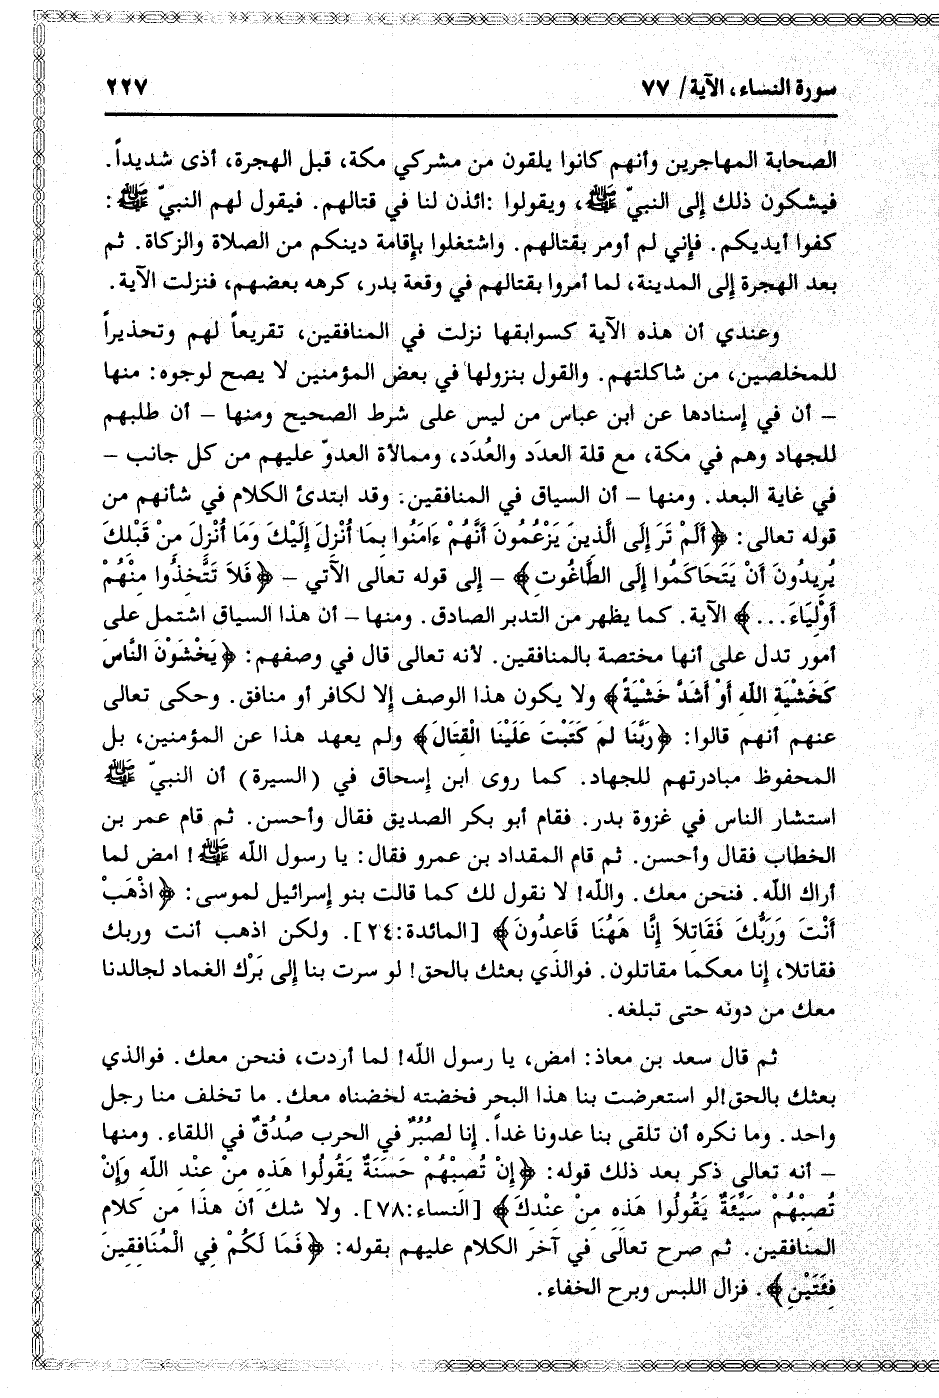 سورة النساء، الآية/ ٧٧ ٢٢٧
الصحابة المهاجرين وأنهم كانوا يلقون من مشركي مكة، قبل الهجرة، أذى شديداً.
فيشكون ذلك إلى النبيّ ﷺ، ويقولوا :ائذن لنا في قتالهم. فيقول لهم النبيّ ﷺ:
كفوا أيديكم. فإني لم أومر بقتالهم. واشتغلوا بإقامة دينكم من الصلاة والزكاة. ثم
بعد الهجرة إلى المدينة، لما أمروا بقتالهم في وقعة بدر، كرهه بعضهم، فنزلت الآية.
وعندي أن هذه الآية كسوابقها نزلت في المنافقين، تقريعاً لهم وتحذيراً
للمخلصين، من شاكلتهم. والقول بنزولها في بعض المؤمنين لا يصح لوجوه: منها
– أن في إسنادها عن ابن عباس من ليس على شرط الصحيح ومنها – أن طلبهم
للجهاد وهم في مكة، مع قلة العدَد والعُدَد، وممالأة العدوّ عليهم من كل جانب –
في غاية البعد. ومنها – أن السياق في المنافقين. وقد ابتدئ الكلام في شأنهم من
قوله تعالى: ﴿أَلَمْ تَرَ إِلَى الَّذِينَ يَزْعُمُونَ أَنَّهُمْ ءَامَنُوا بِمَا أُنْزِلَ إِلَيْكَ وَمَا أُنْزِلَ مِنْ قَبْلِكَ
يُرِيدُونَ أَنْ يَتَحَاكَمُوا إِلَى الطَّاغُوتِ﴾ – إلى قوله تعالى الآتي – ﴿فَلاَ تَتَّخِذُوا مِنْهُمْ
أَوْلِيَاءَ...﴾ الآية. كما يظهر من التدبر الصادق. ومنها – أن هذا السياق اشتمل على
أمور تدل على أنها مختصة بالمنافقين. لأنه تعالى قال في وصفهم: ﴿يَخْشَوْنَ النَّاسَ
كَخَشْيَةِ اللَّهِ أَوْ أَشَدَّ خَشْيَةً﴾ ولا يكون هذا الوصف إلا لكافر أو منافق. وحكى تعالى
عنهم أنهم قالوا: ﴿رَبَّنَا لِمَ كَتَبْتَ عَلَيْنَا الْقِتَالَ﴾ ولم يعهد هذا عن المؤمنين، بل
المحفوظ مبادرتهم للجهاد. كما روى ابن إسحاق في (السيرة) أن النبيّ ﷺ
استشار الناس في غزوة بدر. فقام أبو بكر الصديق فقال وأحسن. ثم قام عمر بن
الخطاب فقال وأحسن. ثم قام المقداد بن عمرو فقال: يا رسول الله ﷺ! امض لما
أراك الله. فنحن معك. والله! لا نقول لك كما قالت بنو إسرائيل لموسى: ﴿اذْهَبْ
أَنْتَ وَرَبُّكَ فَقَاتِلاَ إِنَّا هَهُنَا قَاعِدُونَ﴾ [المائدة:٢٤]. ولكن اذهب أنت وربك
فقاتلا، إنا معكما مقاتلون. فوالذي بعثك بالحق! لو سرت بنا إلى بَرْك الغماد لجالدنا
معك من دونه حتى تبلغه.
ثم قال سعد بن معاذ: امض، يا رسول الله! لما أردت، فنحن معك. فوالذي
بعثك بالحق!لو استعرضت بنا هذا البحر فخضته لخضناه معك. ما تخلف منا رجل
واحد. وما نكره أن تلقى بنا عدونا غداً. إنا لصُبُرٌ في الحرب صُدُقٌ في اللقاء. ومنها
– أنه تعالى ذكر بعد ذلك قوله: ﴿إِنْ تُصِبْهُمْ حَسَنَةٌ يَقُولُوا هَذِهِ مِنْ عِنْدِ اللَّهِ وَإِنْ
تُصِبْهُمْ سَيِّئَةٌ يَقُولُوا هَذِهِ مِنْ عِنْدِكَ﴾ [النساء:٧٨]. ولا شك أن هذا من كلام
المنافقين. ثم صرح تعالى في آخر الكلام عليهم بقوله: ﴿فَمَا لَكُمْ فِي الْمُنَافِقِينَ
فِئَتَيْنِ﴾. فزال اللبس وبرح الخفاء.